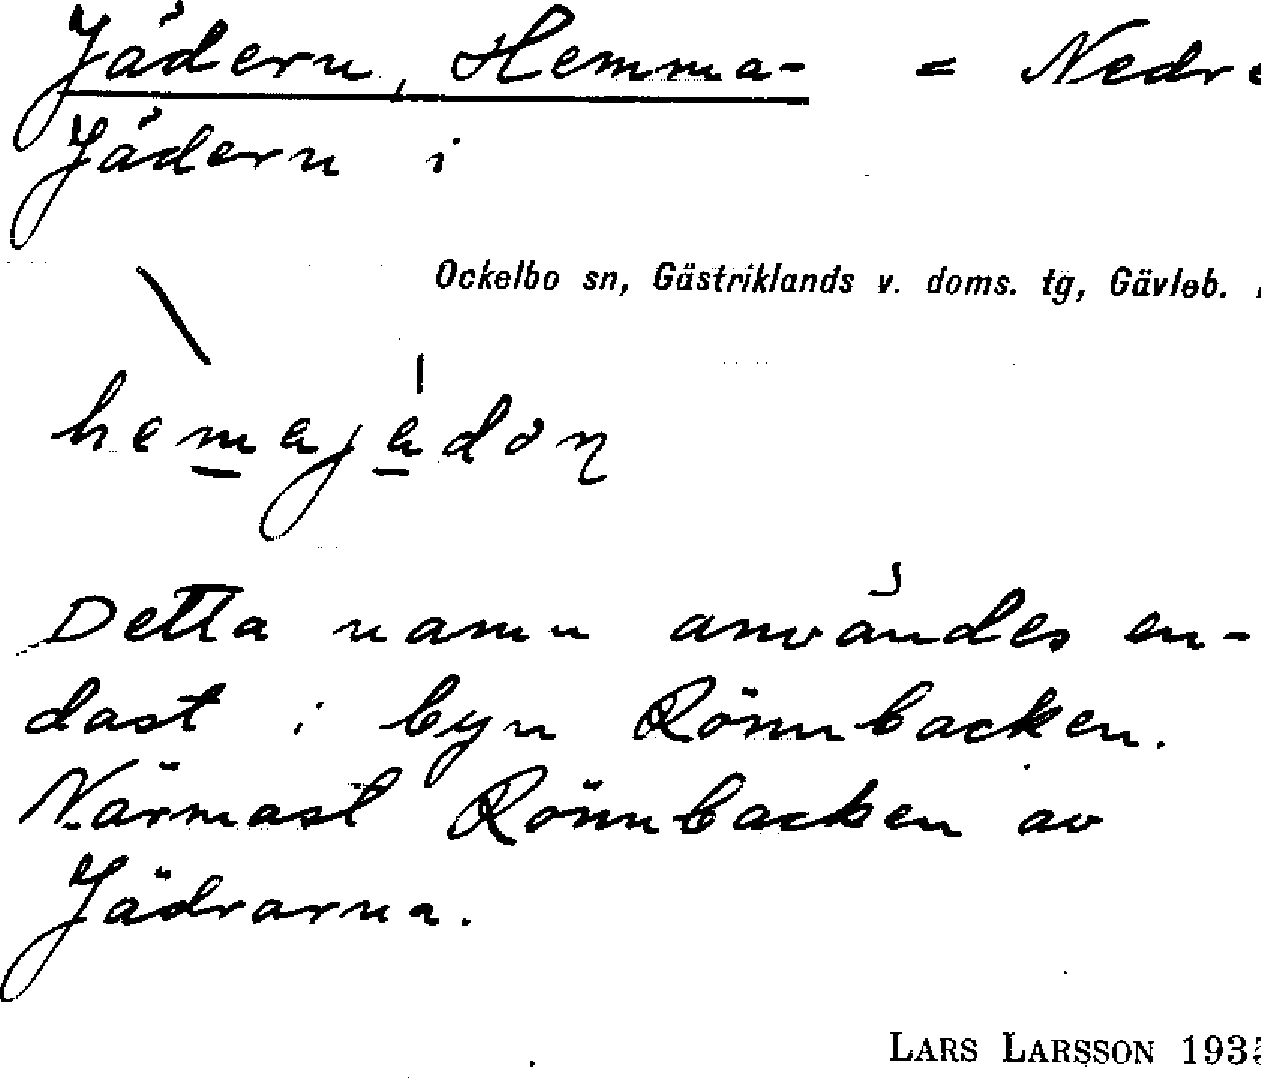 Jädern, Hemma- = Nedre
Jädern i
Ockelbo sn, Gästriklands v. doms. tg, Gävleb.
hemajädoŋ
Detta namn användes en-
dast i byn Rönnbacken.
Närmast Rönnbacken av
Jädrarna.
LARS LARSSON 1935